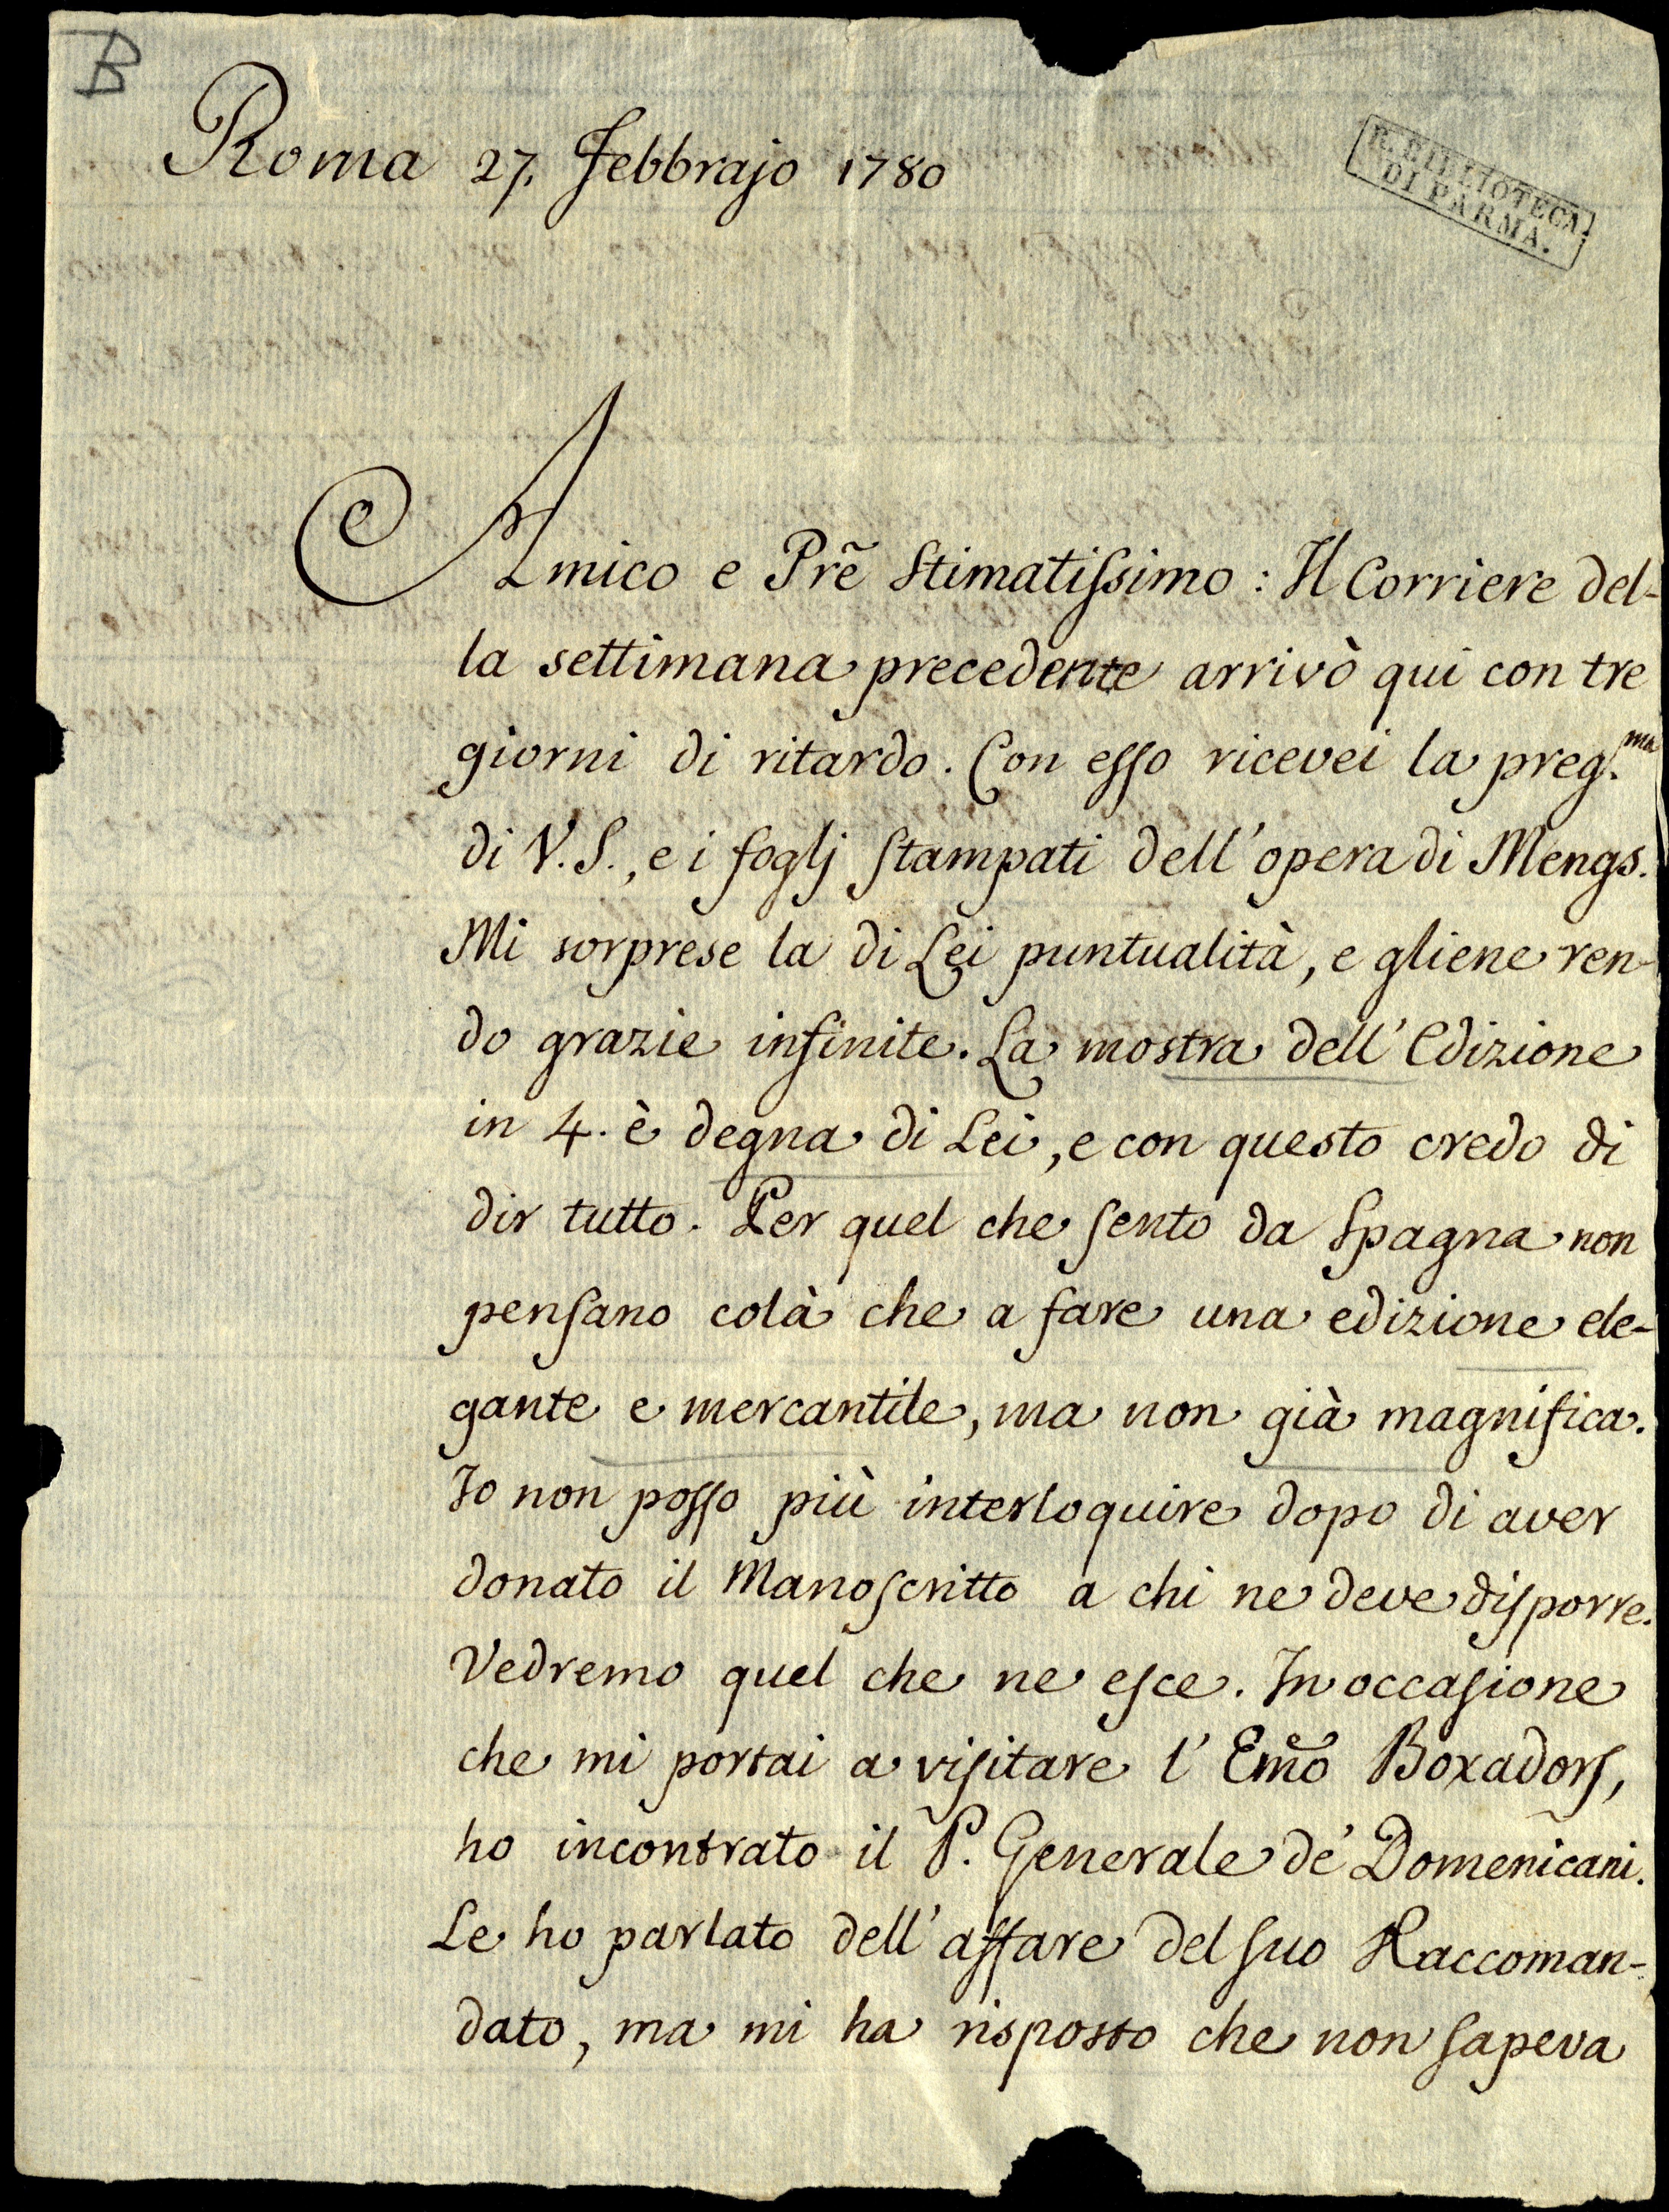 B
Roma 27. Febbrajo 1780
R. BIBLIOTECA
DI PARMA.
Amico e Prẽ Stimatiſsimo: Il Corriere del-
la settimana precedente arrivò qui con tre
giorni di ritardo. Con eſso ricevei la preg.ma
di V.S., e i foglj ſtampati dell'opera di Mengs.
Mi sorprese la di Lei puntualità, e gliene ren-
do grazie infinite. La mostra dell'Edizione
in 4. è degna di Lei, e con questo credo di
dir tutto. Per quel che ſento da Spagna non
penſano colà che a fare una edizione ele-
gante e mercantile, ma non già magnifica.
Io non poſso più interloquire dopo di aver
donato il Manoſcritto a chi ne deve diſporre.
Vedremo quel che ne eſce. In occaſione
che mi portai a viſitare l'Em̃o Boxadorſ,
ho incontrato il P. Generale de' Domenicani.
Le ho parlato dell'affare del ſuo Raccoman-
dato, ma mi ha risposto che non ſapeva